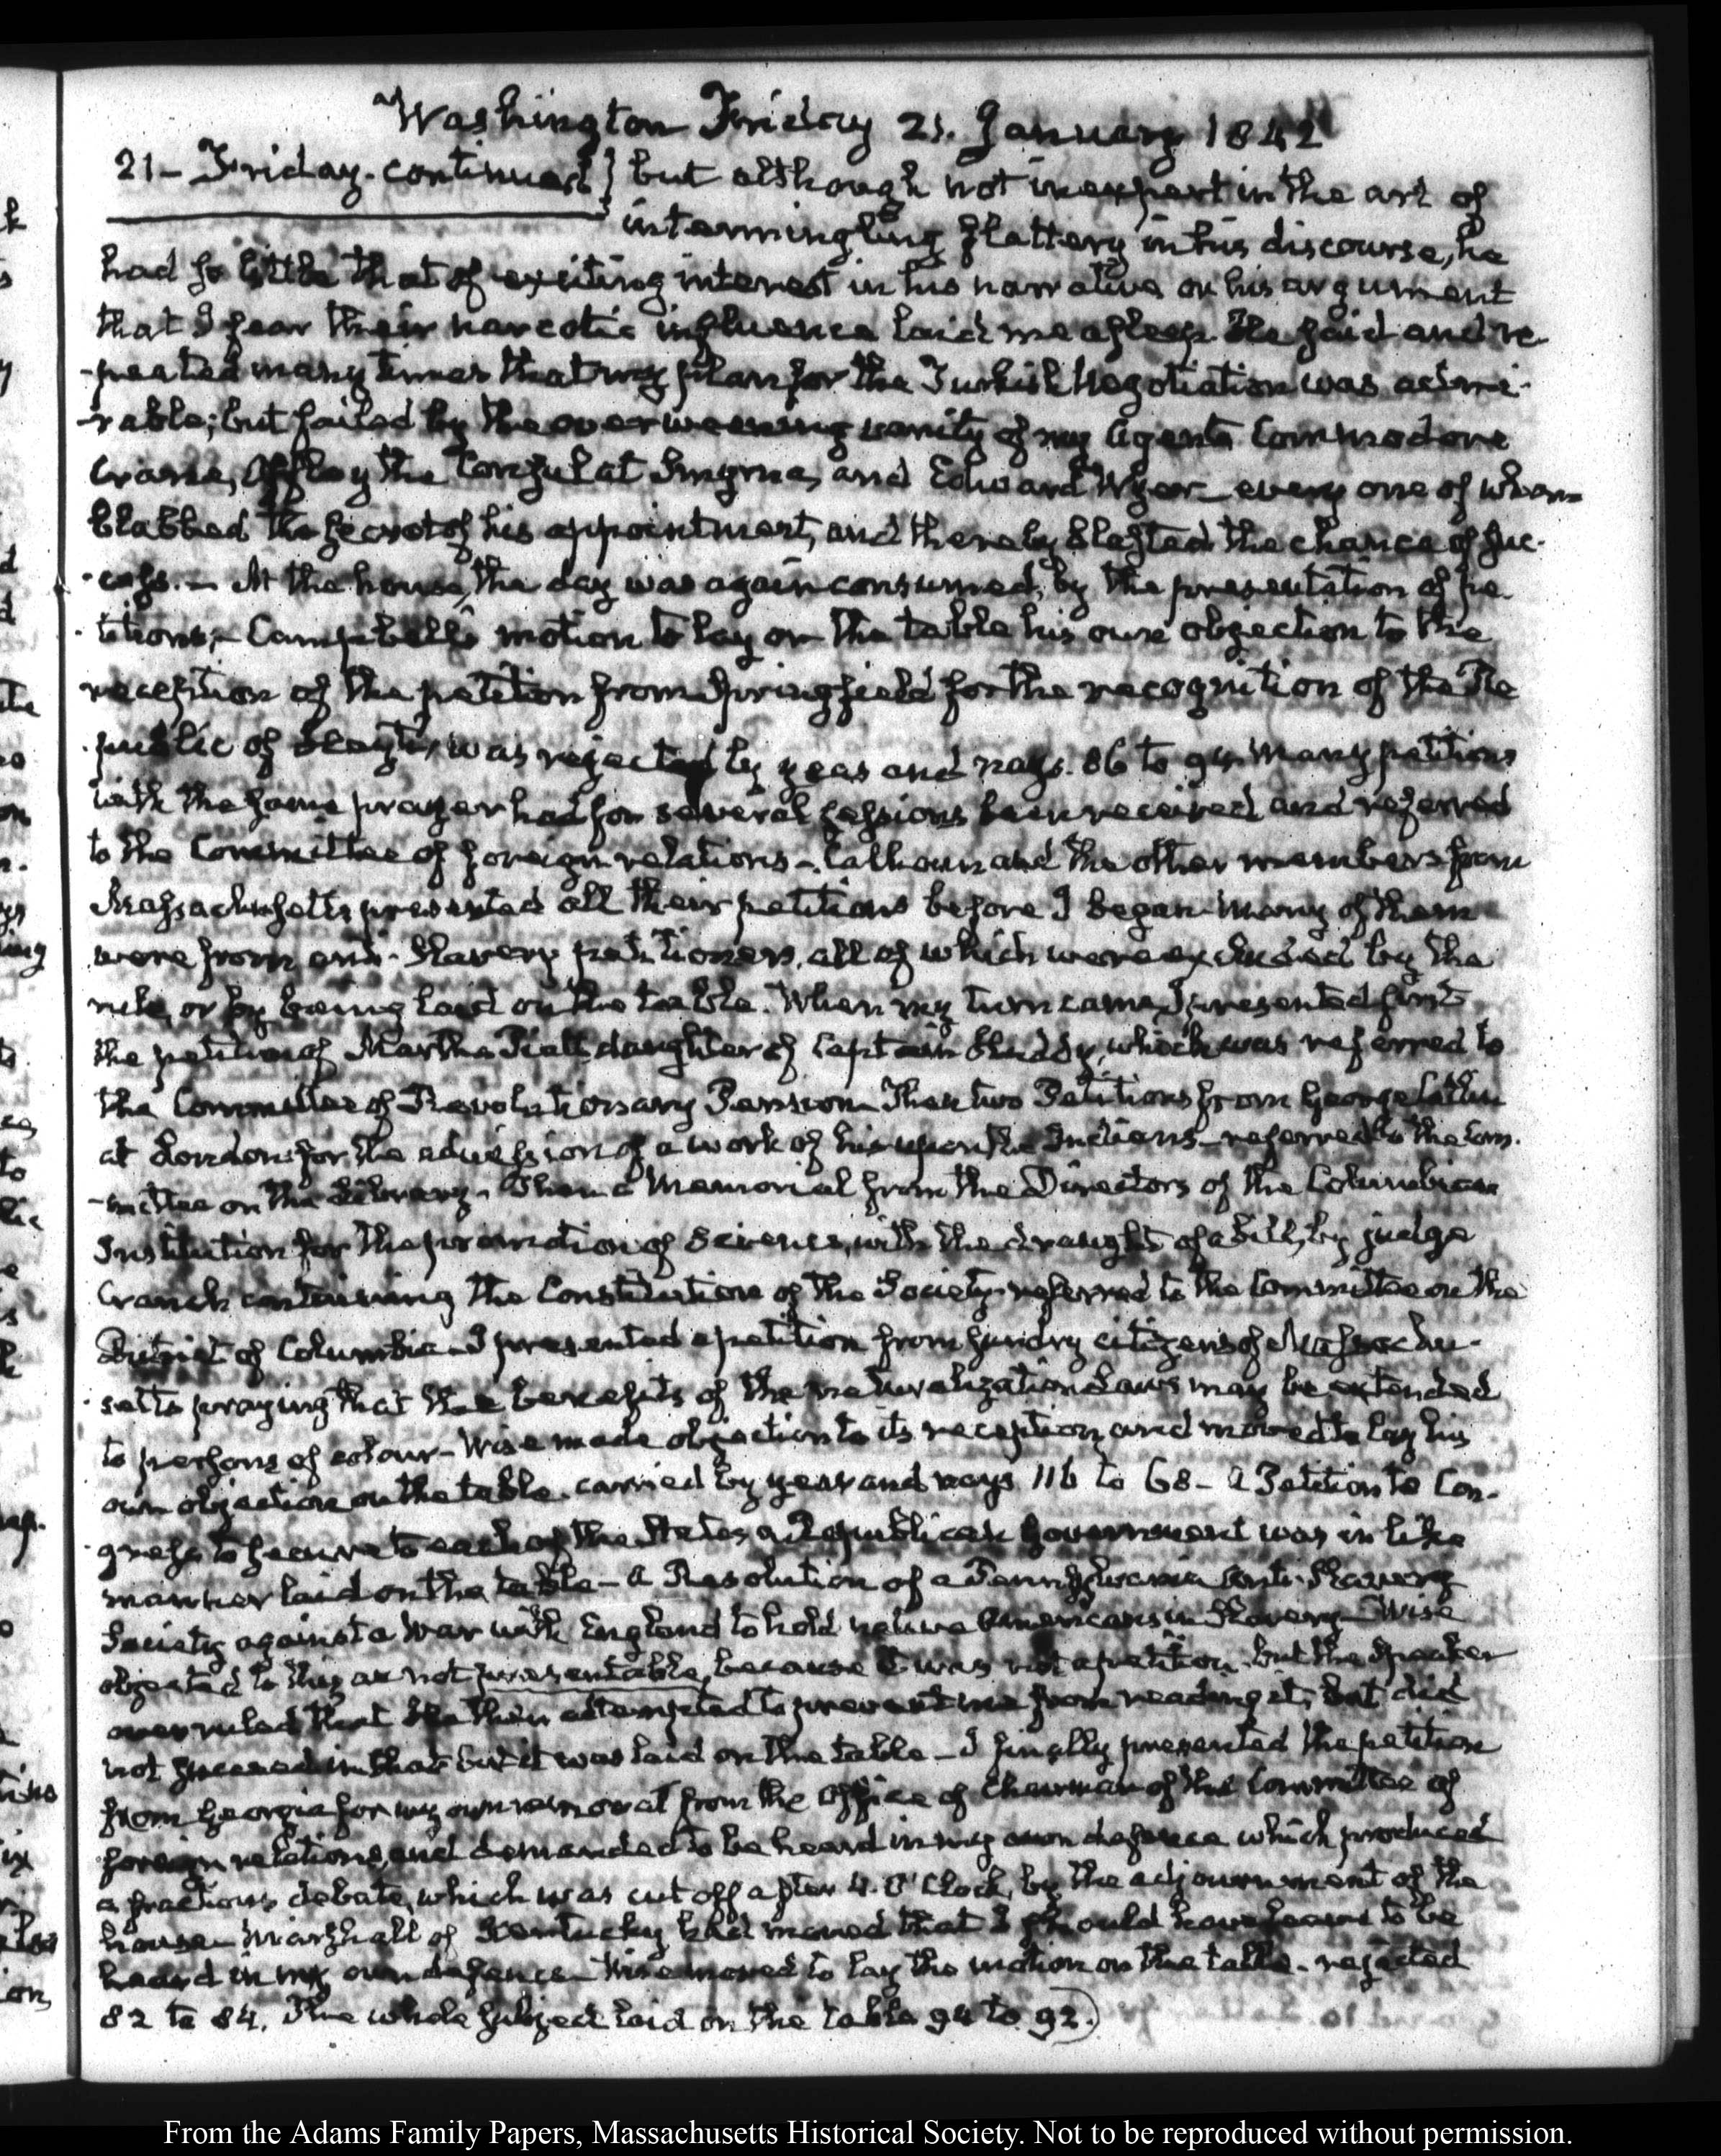 Washington Friday 21. January 1842
21 - Friday. continued} but although not inexpert in the art of
intermingling flattery in his discourse, he
had so little that of exciting interest in his narrative or his argument
that I fear their narcotic influence laid me asleep. He said and re-
-peated many times that my plan for the Turkish Negotiation was admi-
-rable; but failed by the overweening vanity of my Agents Commodore
Crane, Offley the Consul at Smyrna, and Edward Wyer every one of whom
blabbed the secret of his appointment, and thereby blasted the chance of suc-
-cess. — At the house, the day was again consumed, by the presentation of pe-
-titions; Campbell's motion to lay on the table his own objection to the
reception of the petition from Springfield for the recognition of the Re
-public of Hayti, was rejected by yeas and nays. 86 to 94. Many petitions
with the same prayer had for several sessions been received and referred
to the Committee of foreign relations - Calhoun and the other members from
Massachusetts presented all their petitions before I began. Many of them
were from anti-slavery petitioners, all of which were excluded by the
rule, or by being laid on the table. When my turn came, I presented first
the petition of Martha daughter of Captain which was referred to
the Committee of Revolutionary Pension. Then two Petitions from George Catlin
at London for the admission of a work of his upon the Indians - referred to the Com-
-mittee on the Library. Then a Memorial from the Directors of the Columbian
Institution for the promotion of Science, with the draught of a Bill, by judge
Cranch containing the Constitution of the Society referred to the Committee on the
District of Columbia - I presented a petition from sundry citizens of Massachu-
-setts praying that the benefits of the naturalization Laws may be extended
to persons of colour - Wise made objection to its reception, and moved to lay his
own objection on the table. carried by yeas and nays 116 to 68 - A Petition to Con-
-gress to secure to each of the States a Republican Government was in like
manner laid on the table - A Resolution of a Pennsylvania Anti-Slavery
Society against a War with England to hold native Americans in Slavery - Wise
objected to this as not presentable, because it was not a petition. but the Speaker
overruled that He then attempted to prevent me from reading it, but did
not succeed in that but it was laid on the table - I finally presented the petition
from Georgia for my own removal from the Office of Chairman of the Committee of
foreign relations, and demanded to be heard in my own defence which produced
a fractious debate, which was cut off after 4. O'Clock, by the adjournment of the
house - Marshall of Kentucky had moved that I should have leave to be
heard in my own defence - Wise moved to lay the motion on the table - rejected
82 to 84. The whole subject laid on the table 94 to 92.)
From the Adams Family Papers, Massachusetts Historical Society. Not to be reproduced without permission.